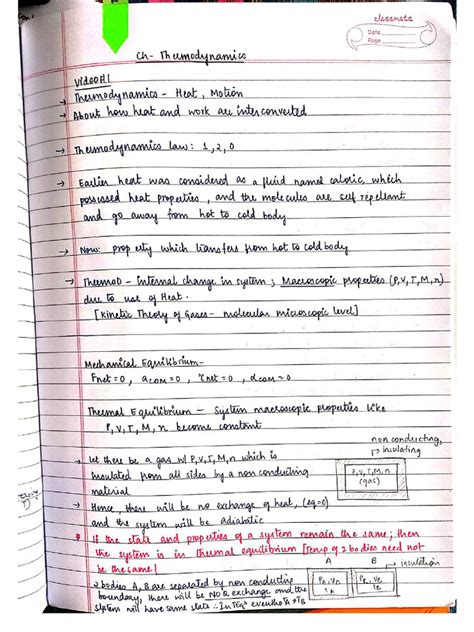 classmate
Date
Page
Ch- Thermodynamics
Video#1
→ Thermodynamics - Heat, Motion
→ About how heat and work are interconverted
→ Thermodynamics law: 1, 2, 0
→ Earlier heat was considered as a fluid named caloric, which
possessed heat properties, and the molecules are self repellant
and go away from hot to cold body
→ Now: property which transfers from hot to cold body
→ ThermoD - internal change in system; Macroscopic properties (P,V,T,M,n)
due to use of Heat.
[Kinetic Theory of Gases- molecular microscopic level]
Mechanical Equilibrium-
Fnet=0, aCOM=0, τnet=0, αCOM=0
Thermal Equilibrium - System macroscopic properties like
P, V, T, M, n become constant
non conducting,
→ insulating
→ let there be a gas w/ P,V,T,M,n which is
insulated from all sides by a non conducting
material
P,V,T,M,n
(gas)
→ Hence, there will be no exchange of heat, (ΔQ=0)
and the system will be adiabatic
* If the state and properties of a system remain the same; then
the system is in thermal equilibrium [Temp of 2 bodies need not
be the same]
A B → insulation
2 bodies A, B are separated by non conducting
boundary, there will be NO Q exchange and the
system will have same state ∴ In TEq even tho A≠TB